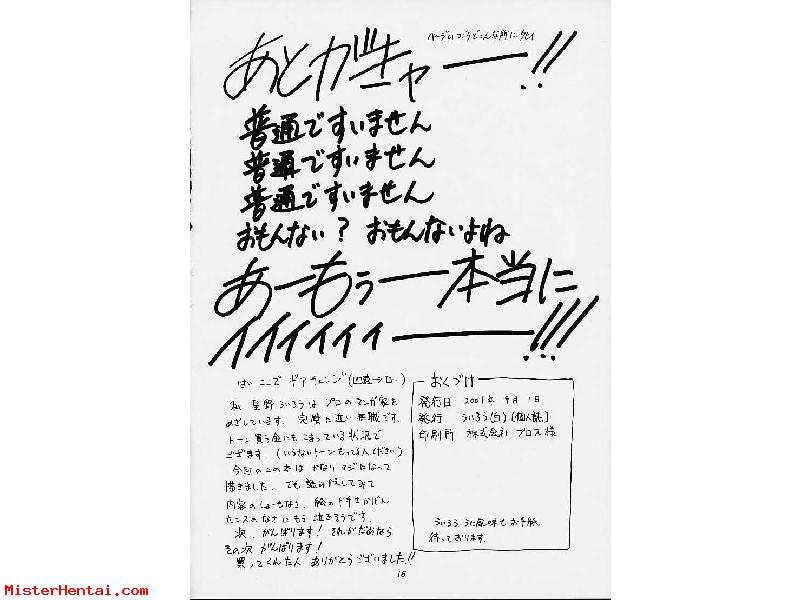 あとがキャー!!
普通ですいません
普通ですいません
普通ですいません
おもんない? おもんないよね
あーもぅー本当に
イイイイイィー!!!
はい ここで ギアチェンジ
私 星野 ういろうは プロのマンガ家を
めざしています。完璧に近い 無職です。
トーン買う金にもこまっている状況で
ございます。(いらないトーンもってる人ください)
今回のこの本は かなりマジになって
描きました。でも 読み返してみて
内容のしょーもなさ、絵のド下手さかげん
センスのなさにもう泣きそうです。
次、がんばります! それがだめなら
その次 がんばります!
買ってくれた人 ありがとうございました!!
おくづけ
発行日 2001年 9月 1日
発行 ういろう(白) (個人誌)
印刷所 株式会社 プロス 様
お手紙
待っております。
16
MisterHentai.com